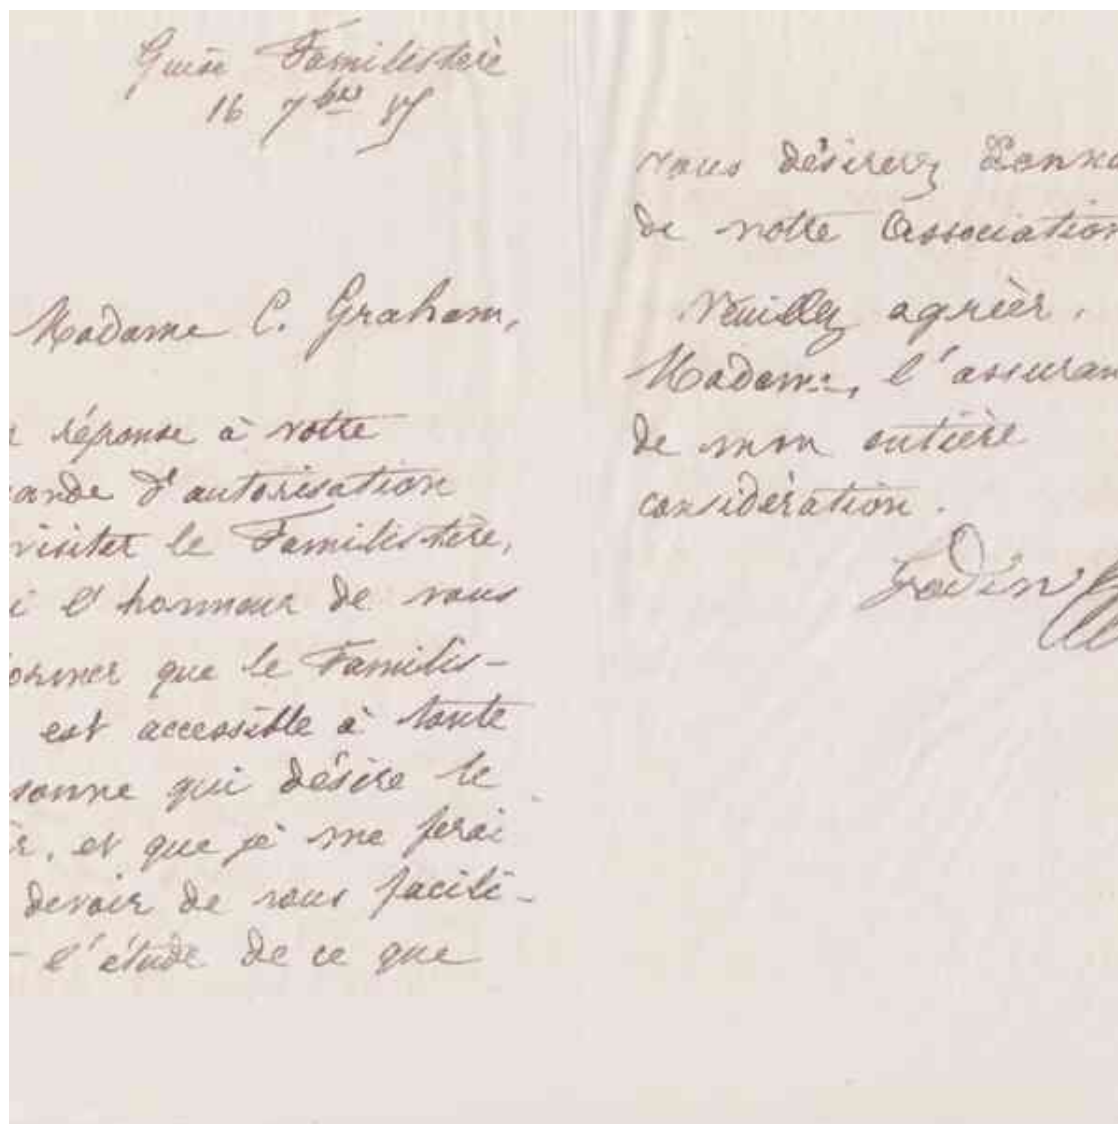 Guise Familistère
16 7bre 85
Madame C. Graham,
réponse à votre
ande d'autorisation
visiter le Familistère,
i l'honneur de vous
ormer que le Familis-
est accessible à toute
sonne qui désire le
r, et que je me ferai
devoir de vous facili-
l'étude de ce que
vous désirerez conna
de notre Association
Veuillez agréer,
Madame, l'assuran
de mon entière
considération.
Godin